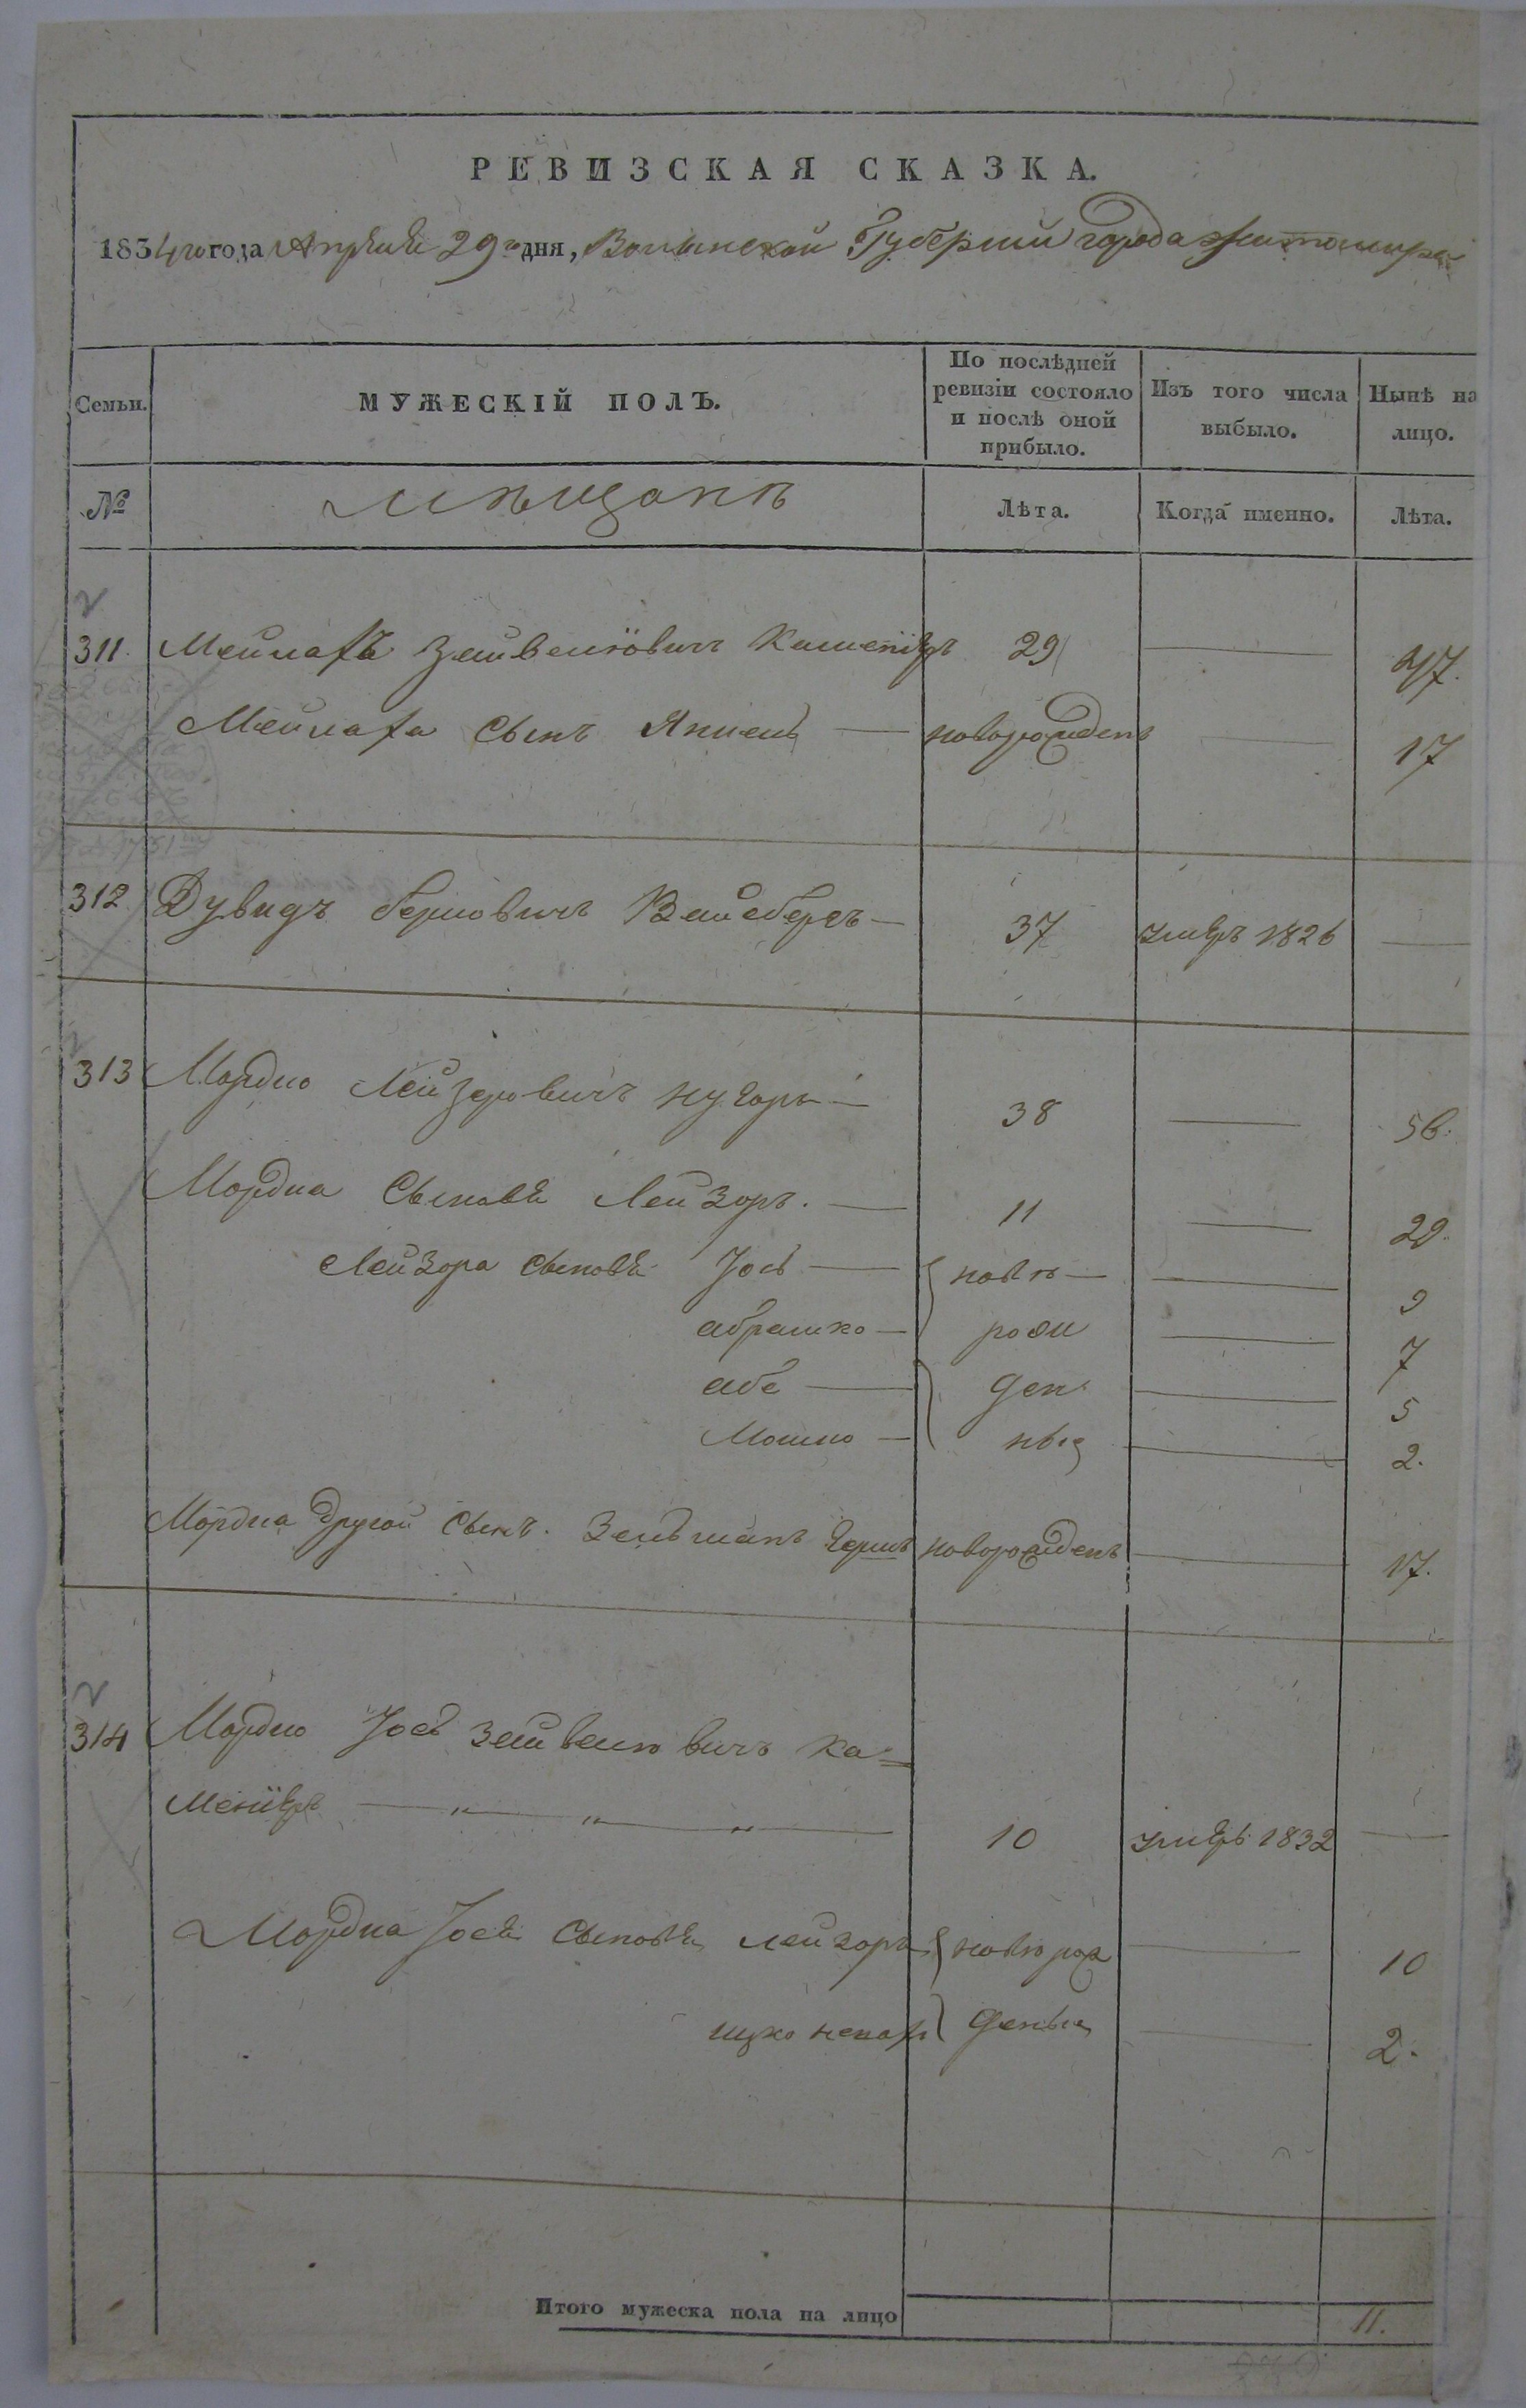 РЕВИЗСКАЯ СКАЗКА.
1834 го года Апреля 29 го дня, Волынской Губернии города Житомира
Семьи.
МУЖЕСКІЙ ПОЛЪ.
По послѣдней ревизіи состояло и послѣ оной прибыло.
Изъ того числа выбыло.
Нынѣ на лицо.
№
Мѣщанъ
Лѣта.
Когда именно.
Лѣта.
311. Мейлахъ Зейвелiовичъ 29 47.
Мейлаха сынъ новорожденъ 17
312 Дувидъ Берковичъ 37 умеръ 1826
313 Мордко Лейзеровичъ 38 56.
Мордка сыновя Лейзоръ. 11 29.
Лейзора сыновя Іось ново 9
Абрамко рож 7
Абе ден 5
Мошко ные 2.
Мордка другой сынъ. Зельманъ Герш новорожденъ 17.
314 Мордко Іось Зейвелювичъ Ка=
менiеръ 10 умеръ 1832
Мордка Іося сыновя Лейзоръ новорож 10
Ицко денные 2.
Итого мужеска пола на лицо 11.